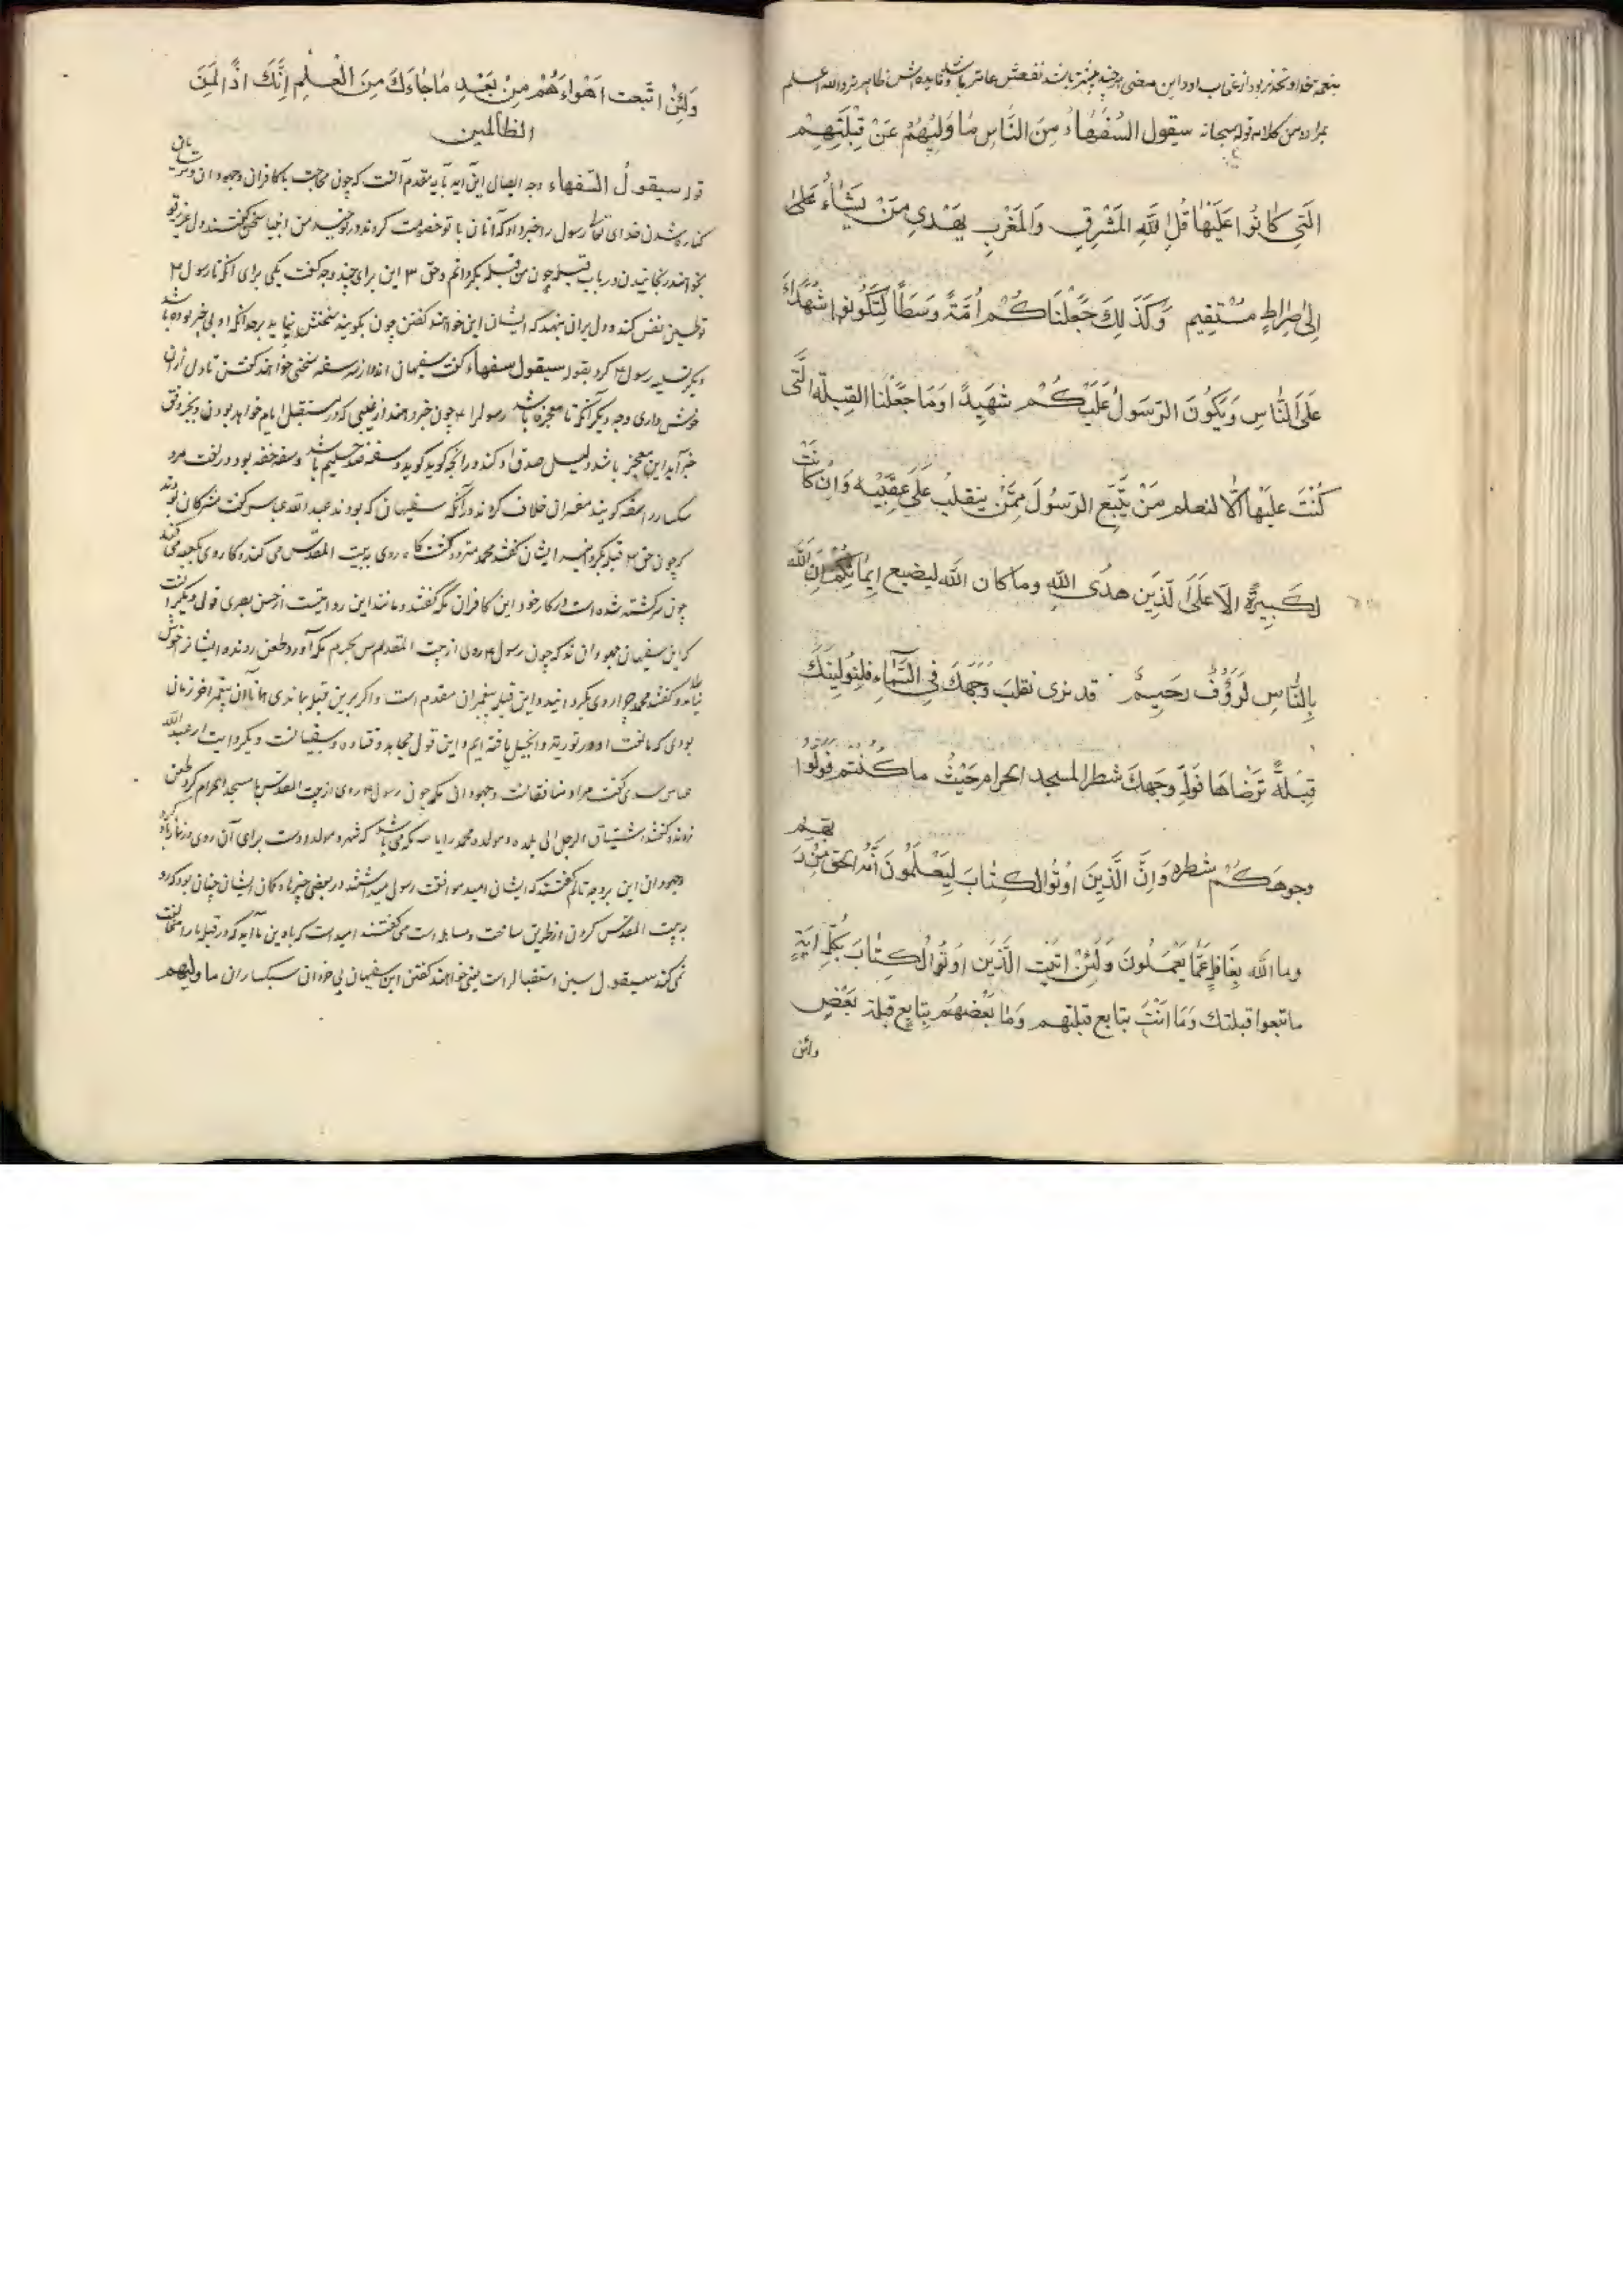 بنعمة خدا و تحذیر بود از عذاب او و این معنی هر چند بیشتر باشد نفعش عامتر باشد و فایده اش ظاهرتر و الله اعلم
بمراده من کلامه قوله سبحانه سیقول السُّفَهَاءُ مِنَ النَّاسِ مَا وَلّیهُمْ عَنْ قِبْلَتِهِمْ
الَّتِی کَانُوا عَلَیْهَا قُل لِلّٰهِ المَشْرِقِ وَالمَغْرِبِ یَهْدِی مَنْ یَشَاءُ عَلَی
اِلیٰ صِرَاطٍ مُسْتَقِیم وَکَذَلِكَ جَعَلْنَاکُمْ اُمَّةً وَسَطًا لِتَکُونُوا شُهَدَاءَ
عَلَی النَّاسِ وَیَکُونَ الرَّسُولُ عَلَیْکُمْ شَهِیدًا وَمَا جَعَلْنَا القِبلَة الَّتی
کُنْتَ عَلَیْهَا اِلَّا لنعلم مَنْ یَتَّبِعُ الرَّسُولَ مِمَّنْ یَنقلبُ عَلَی عَقِبَیْهِ وَاِنْ کَانَتْ
لَکَبِیرَةً اِلَّا عَلَی الَّذِینَ هَدَی اللهُ وما کان الله لیضیع اِیمَانَکُمْ اِنَّ اللهَ
بِالنَّاسِ لَرَؤُفٌ رَحِیمٌ قد نری تقلبَ وَجْهِكَ فِی السَّمَاءِ فلنولینك
قِبْلَةً تَرْضَاهَا فَوَلِّ وَجهَكَ شطر المسجد الحرام حَیْثُ ما کُنتم فَوَلّوا
وجوهَکُمْ شطره وَاِنَّ الَّذِینَ اُوتُوا الکِتَابَ لِیَعْلَمُونَ اَنَّهُ الحَقُّ مِنْ رَبِّهِم
وما الله بِغَافِلٍ عَمَّا یَعْمَلُونَ وَلَئِنْ اَتَیْتَ الَّذِینَ اُوتُوا الکِتَابَ بِکُلِّ اٰیَةٍ
ما تبعوا قبلتك وَمَا اَنْتَ بتابع قبلتهم وَمَا بَعْضُهُم بِتَابِعٍ قبلة بَعْضٍ
ولئن
وَلَئِنْ اتَّبعت اَهْوَاءَهُمْ مِنْ بَعْدِ مَا جَاءَكَ مِنَ الْعِلْمِ اِنَّكَ اِذًا لَمِنَ
الظالمین
قوله سیقولُ السّفهاء وجه اتصال این آیه بآیه مقدم آنست که چون محاجت با کافران و جهودان و ترسایان
کناره شدن خدای تعالی رسول را خبر داد که آنان با تو خصومت کردند در توحید من اینها سخن گفتند و دل عزیز تو
بخواهند رنجانیدن در باب قبله چون من قبله بگردانم و حق این برای چند وجه گفت یکی برای آنکه تا رسول
توطین نفس کند و دل بران بنهد که ایشان این خواهند گفتن چون بگویند سختش نیاید برحد آنکه او بی خبر بوده باشد
دیگر تسلیه رسول کرد بقوله سیقول سفهاء گفت سفیهان اند از سر سفه سخنی خواهند گفتن تا دل از آن
خوش داری وجه دیگر آنکه تا معجزه باشد رسول را چون خبر دهند از غیبی که در مستقبل ایام خواهد بودن و بخبر وفق
خبر آید این معجز باشد و دلیل صدق او کند در آنچه گوید و سفه ضد حلیم باشد و سفه خفه بود در لغت مرد
سبکسار را سفیه گویند مفسران خلاف کردند در آنکه سفیهان که بودند عبد الله عباس گفت مشرکان بودند
که چون حق قبله بگردانید ایشان گفتند محمد متردد گشت گاه روی به بیت المقدس می کند و گاه روی بکعبه می کند
چون سرگشته شده است در کار خود این کافران مکه گفتند و مانند این روایتست از حسن بصری قولی دیگر آنست
که این سفیهان جهودان اند که چون رسول روی از بیت المقدس بحرم مکه آورد طعن زدند ایشان را خوش
نیامد و گفتند محمد چرا روی بگردانید و این قبله پیغمبران مقدم است و اگر برین قبله بماندی همانا آن پیغمبر آخر زمان
بودی که ما نعت او در توریة و انجیل یافته ایم و این قول مجاهد و قتاده و سفیانست و یک روایت از عبد الله
عباس سدی گفت مراد منافقانست و جهودان مکه چون رسول روی از بیت المقدس با مسجد الحرام کرد طعن
زدند و گفتند اشتیاق الرجل الی بلده و مولده محمد را یاسه مکه می باشد که شهر و مولد اوست برای آن روی در نماز بآن کرد
و جهودان این بر وجه تالم گفتند که ایشان امید موافقت رسول میداشتند در بعضی چیزها و گمان ایشان چنان بود که رو
به بیت المقدس کردن از طریق ساخت و مساهله است می گفتند امید است که با دین ما آید که در قبله ما را مخالفت
نمی کند سیقول سین استقبال راست یعنی خواهند گفتن این سفیهان بی خردان سبکساران ما ولیهم